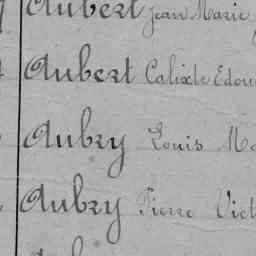 Aubert Jean Marie
Aubert Calixte Edou
Aubry Louis Ma
Aubry Pierre Vict